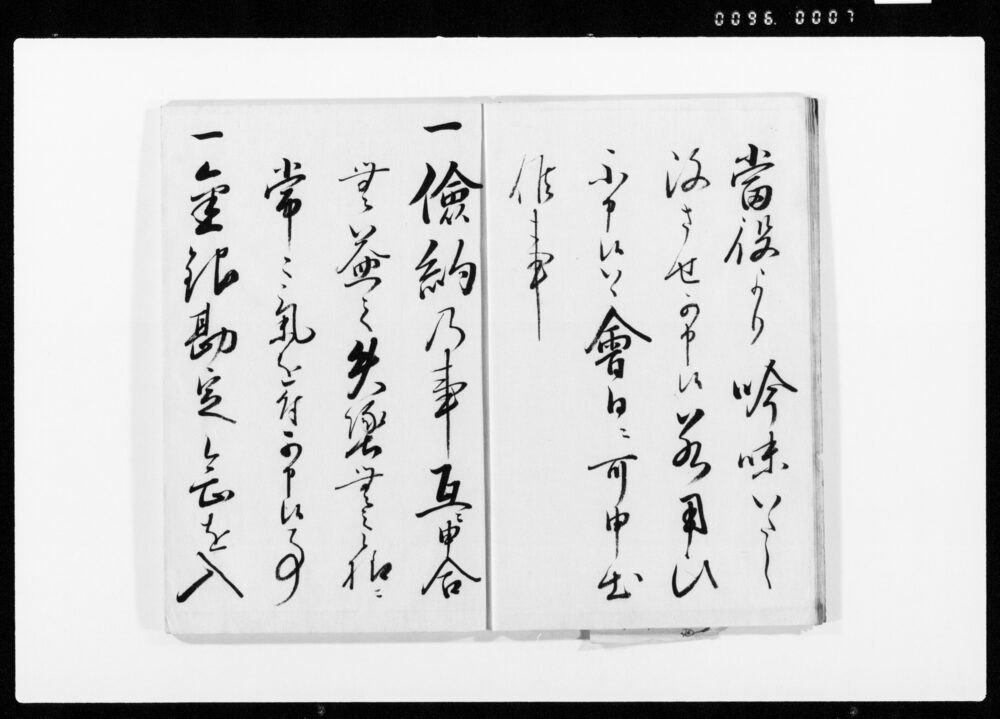 0096.0007
當役より吟味いたし
済させ可申候若用ひ
不申候ハヽ會日ニ可申出
候事
一儉約乃事互ニ申合
無益之失墜無之様ニ
常ニ氣を付可申候事
一金銀勘定念を入